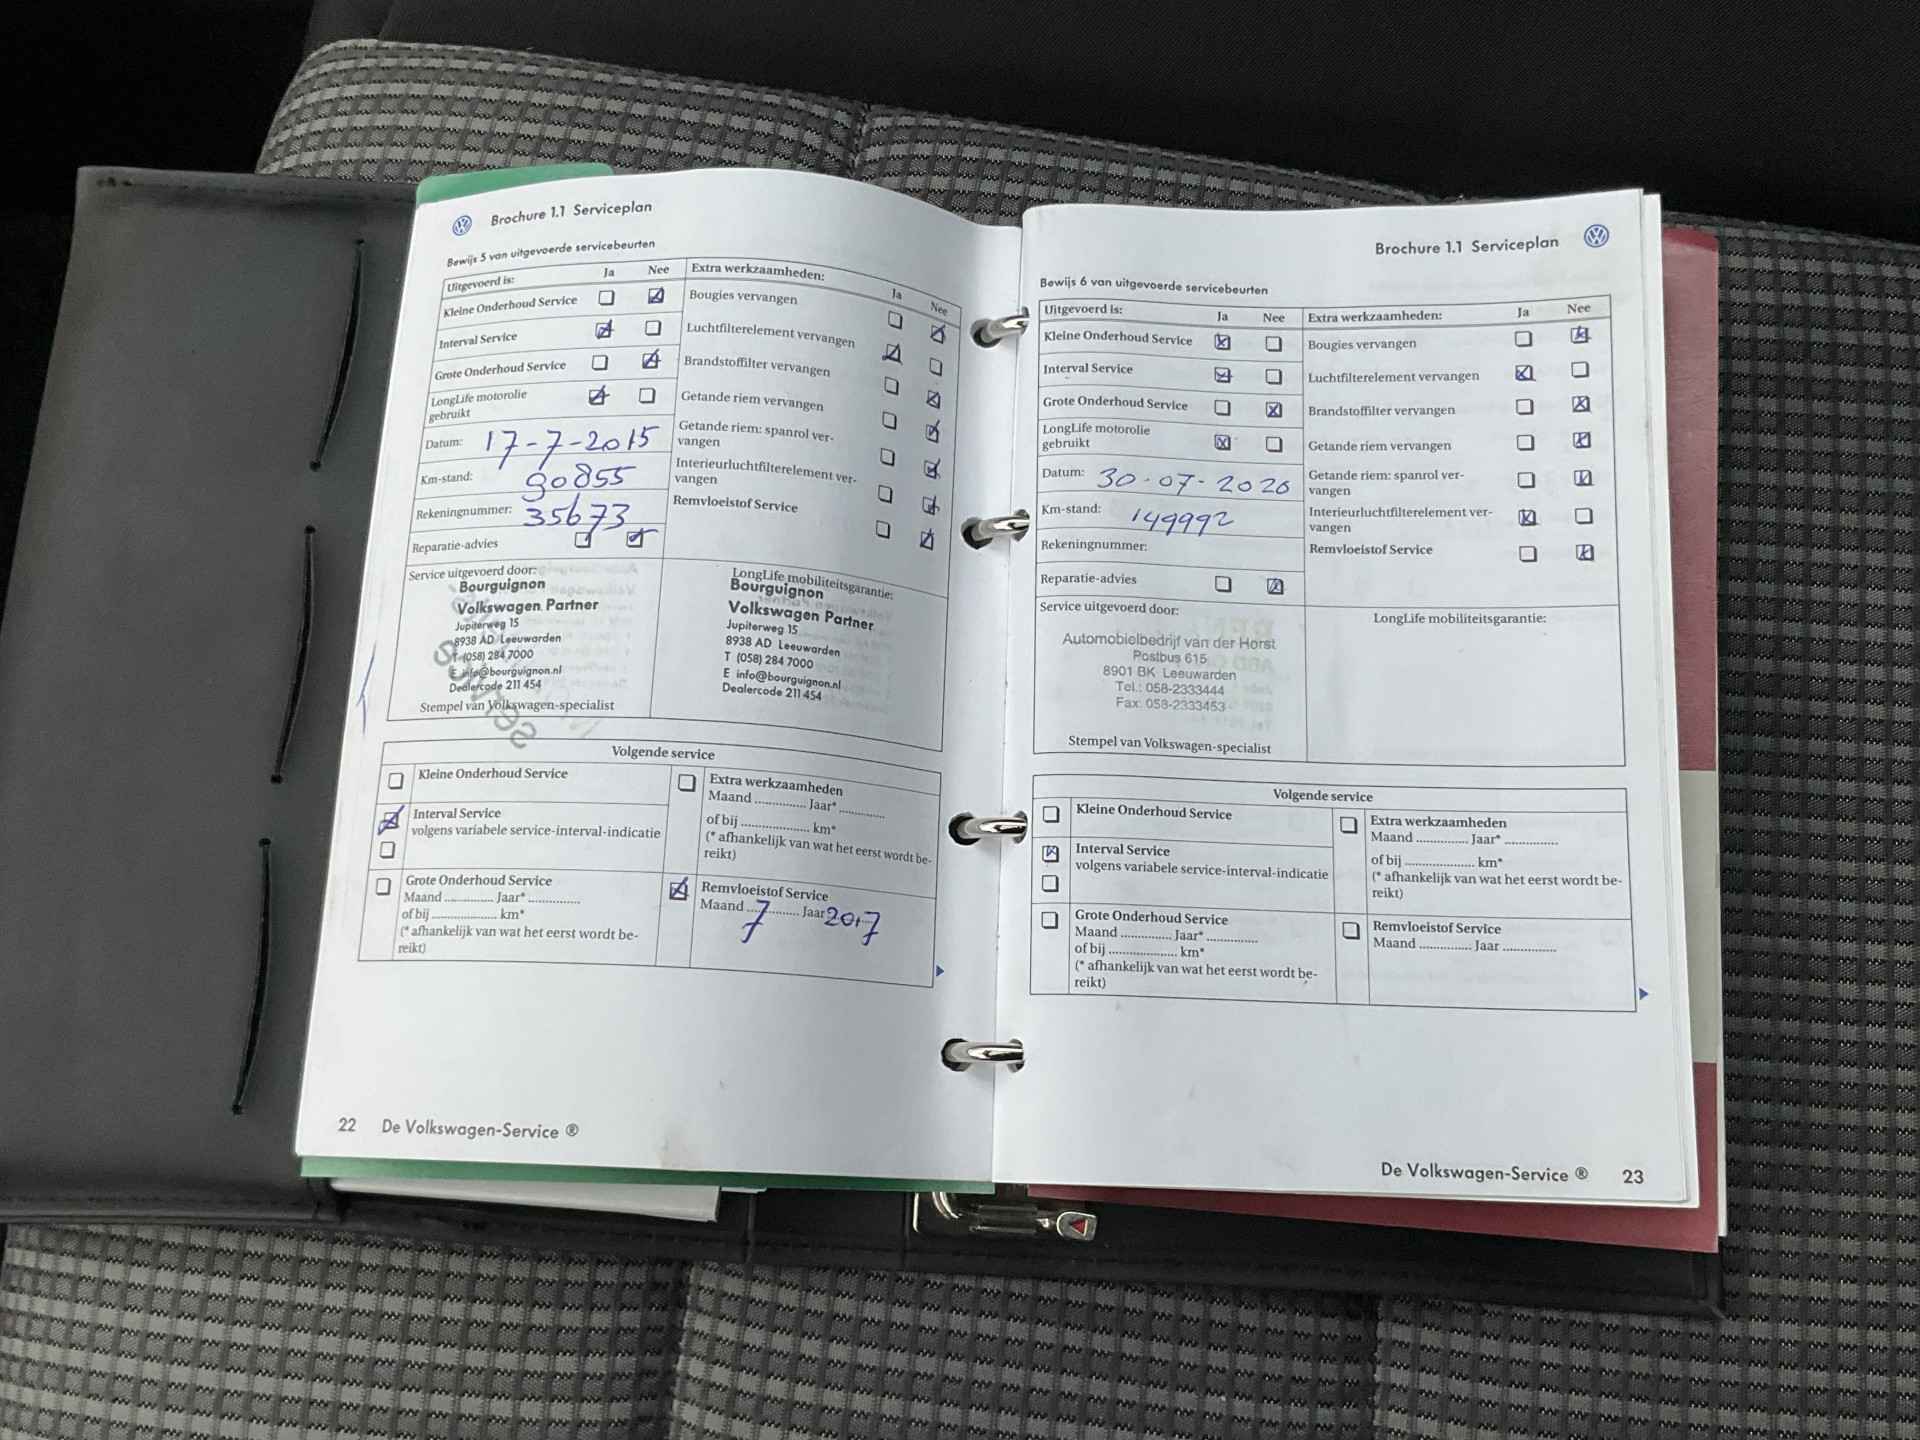 Brochure 1.1 Serviceplan
Bewijs 5 van uitgevoerde servicebeurten
Uitgevoerd is: Ja Nee
Kleine Onderhoud Service
Interval Service
Grote Onderhoud Service
LongLife motorolie
gebruikt
Datum: 17-7-2015
Km-stand: 90855
Rekeningnummer: 35673
Reparatie-advies
Extra werkzaamheden: Ja Nee
Bougies vervangen
Luchtfilterelement vervangen
Brandstoffilter vervangen
Getande riem vervangen
Getande riem: spanrol ver-
vangen
Interieurluchtfilterelement ver-
vangen
Remvloeistof Service
Service uitgevoerd door:
Bourguignon
Volkswagen Partner
Jupiterweg 15
8938 AD Leeuwarden
T (058) 284 7000
E info@bourguignon.nl
Dealercode 211 454
Stempel van Volkswagen-specialist
LongLife mobiliteitsgarantie:
Bourguignon
Volkswagen Partner
Jupiterweg 15
8938 AD Leeuwarden
T (058) 284 7000
E info@bourguignon.nl
Dealercode 211 454
Volgende service
Kleine Onderhoud Service
Interval Service
volgens variabele service-interval-indicatie
Grote Onderhoud Service
Maand .............. Jaar* ..............
of bij ................... km*
(* afhankelijk van wat het eerst wordt be-
reikt)
Extra werkzaamheden
Maand .............. Jaar* ..............
of bij ................... km*
(* afhankelijk van wat het eerst wordt be-
reikt)
Remvloeistof Service
Maand 7 Jaar 2017
22 De Volkswagen-Service ®
Brochure 1.1 Serviceplan
Bewijs 6 van uitgevoerde servicebeurten
Uitgevoerd is: Ja Nee
Kleine Onderhoud Service
Interval Service
Grote Onderhoud Service
LongLife motorolie
gebruikt
Datum: 30-07-2020
Km-stand: 149992
Rekeningnummer:
Reparatie-advies
Extra werkzaamheden: Ja Nee
Bougies vervangen
Luchtfilterelement vervangen
Brandstoffilter vervangen
Getande riem vervangen
Getande riem: spanrol ver-
vangen
Interieurluchtfilterelement ver-
vangen
Remvloeistof Service
Service uitgevoerd door:
Automobielbedrijf van der Horst
Postbus 615
8901 BK Leeuwarden
Tel.: 058-2333444
Fax: 058-2333453
Stempel van Volkswagen-specialist
LongLife mobiliteitsgarantie:
Volgende service
Kleine Onderhoud Service
Interval Service
volgens variabele service-interval-indicatie
Grote Onderhoud Service
Maand .............. Jaar* ..............
of bij ................... km*
(* afhankelijk van wat het eerst wordt be-
reikt)
Extra werkzaamheden
Maand .............. Jaar* ..............
of bij ................... km*
(* afhankelijk van wat het eerst wordt be-
reikt)
Remvloeistof Service
Maand .............. Jaar ..............
De Volkswagen-Service ® 23